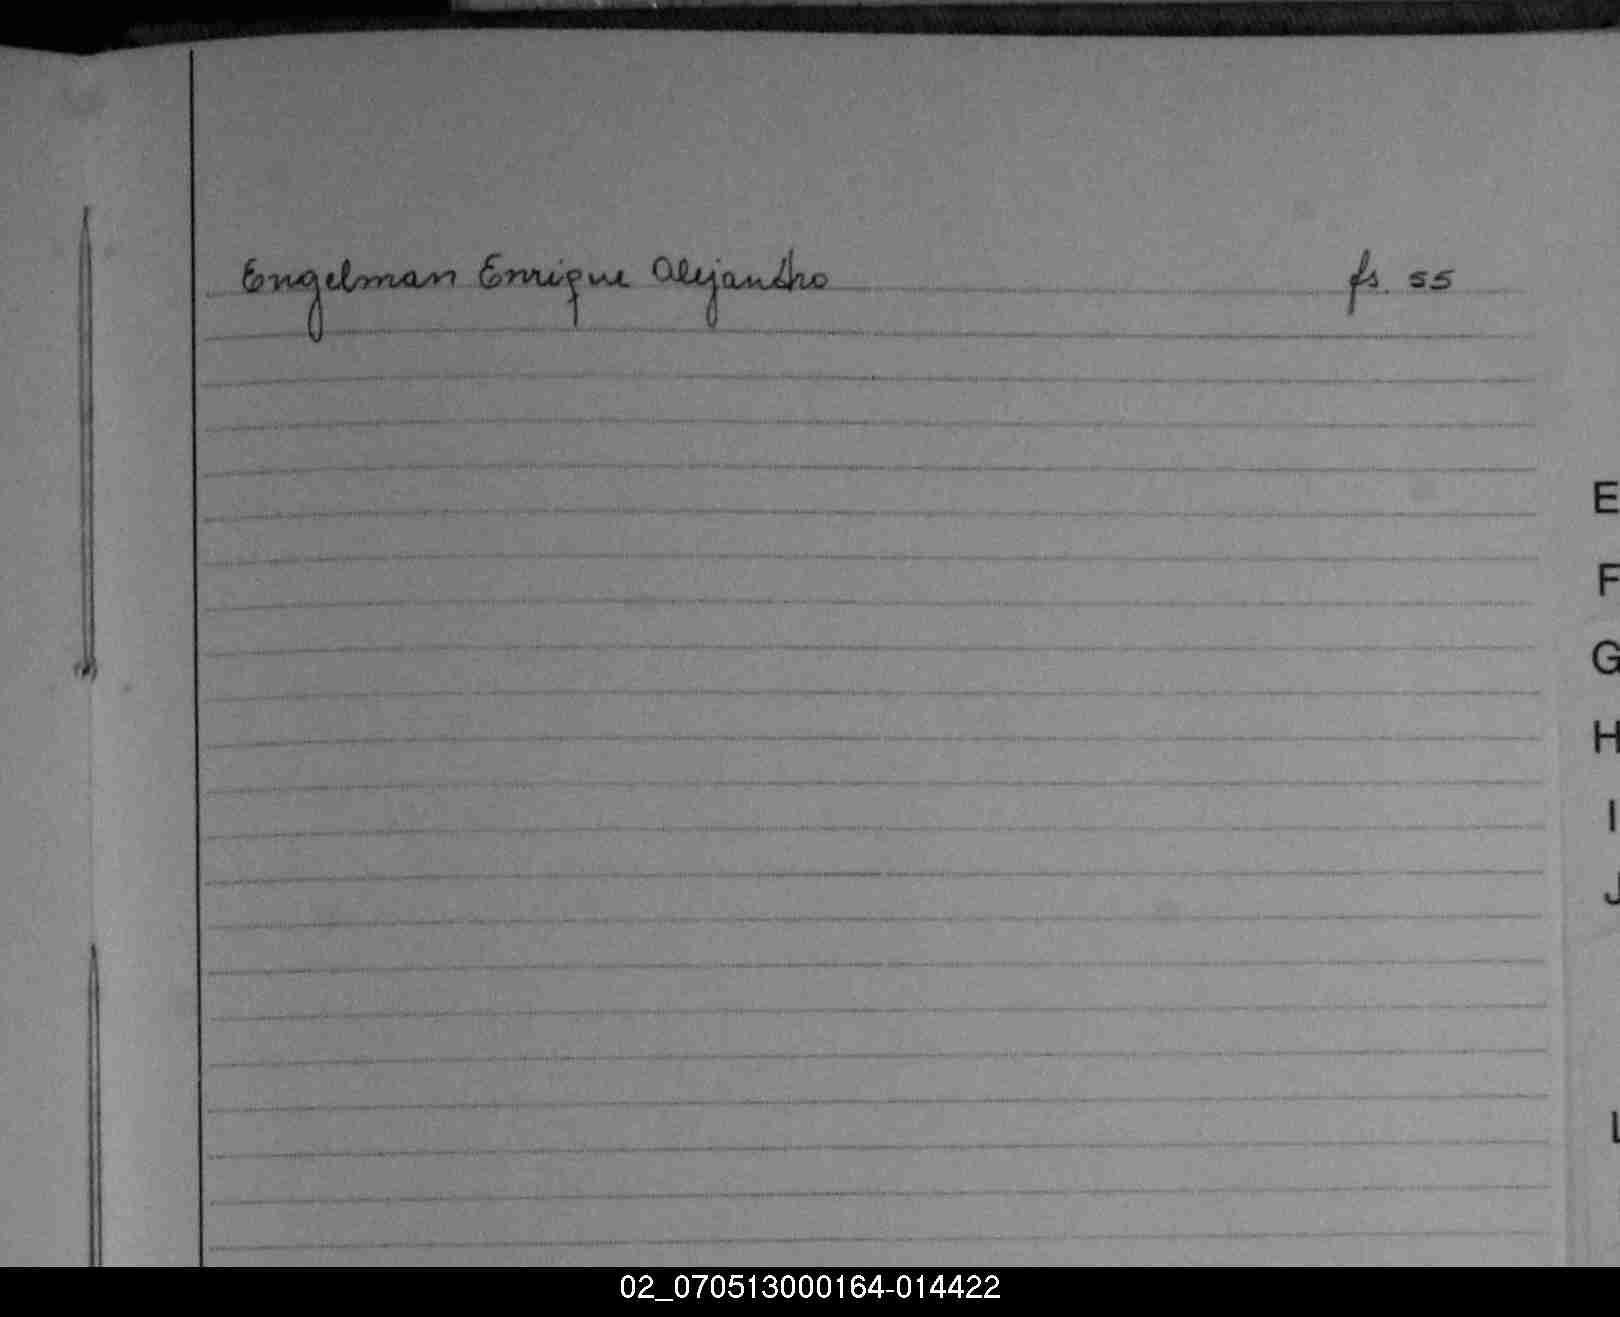 Engelman Enrique Alejandro fs. 55
E
F
G
H
I
J
L
02_070513000164-014422